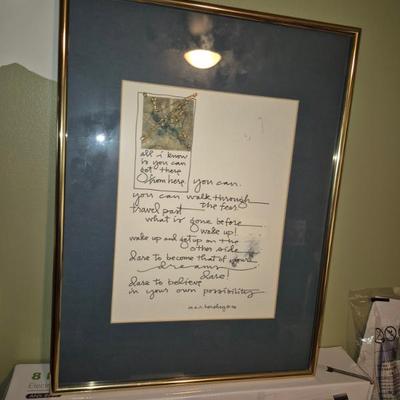 all i know
is you can
get there
from here. you can.
you can walk through
the fear.
travel past
what is gone before
wake up!
wake up and get up on the
other side
dare to become that of your
dreams
dare!
dare to believe
in your own possibility
8
Electri